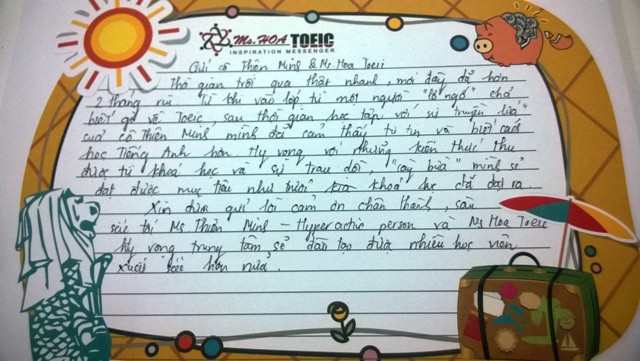 Ms. HOA TOEIC
INSPIRATION MESSENGER
Gửi cô Thiên Minh & Ms. Hoa Toeic
Thời gian trôi qua thật nhanh, mới đây đã hơn
2 tháng rùi từ khi vào lớp, từ một người "lơ ngơ" chả
biết gì về Toeic, sau thời gian học tập với sự truyền lửa
của cô Thiên Minh mình đã cảm thấy tự tin và biết cách
học Tiếng Anh hơn. Hy vọng với những kiến thức thu
được từ khoá học và sự trau dồi, "cày bừa" mình sẽ
đạt được mục tiêu như khoá học đã đặt ra.
Xin được gửi lời cảm ơn chân thành, sâu
sắc tới Ms Thiên Minh - Hyperactic person và Ms Hoa Toeic
Hy vọng trung tâm sẽ đào tạo được nhiều học viên
xuất sắc hơn nữa.